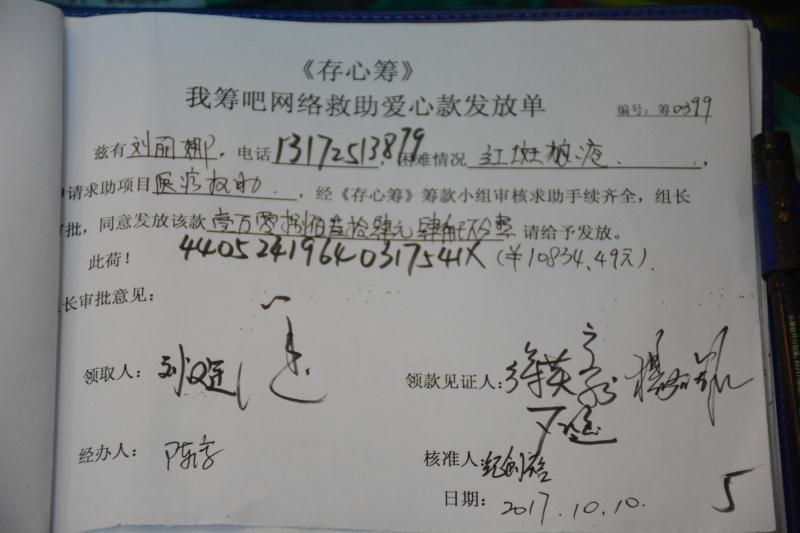 《存心筹》
我筹吧网络救助爱心款发放单
编号：筹0399
兹有刘丽娜，电话13172513879，困难情况 红斑狼疮，
请求助项目医疗救助，经《存心筹》筹款小组审核求助手续齐全，组长
批，同意发放该款壹万零捌佰叁拾肆元肆角玖分整 请给予发放。
此荷！ 44052419640317541X (￥10834.49元).
长审批意见：
领取人：刘汉
领款见证人：
经办人：陈
核准人：
日期：2017.10.10.
5